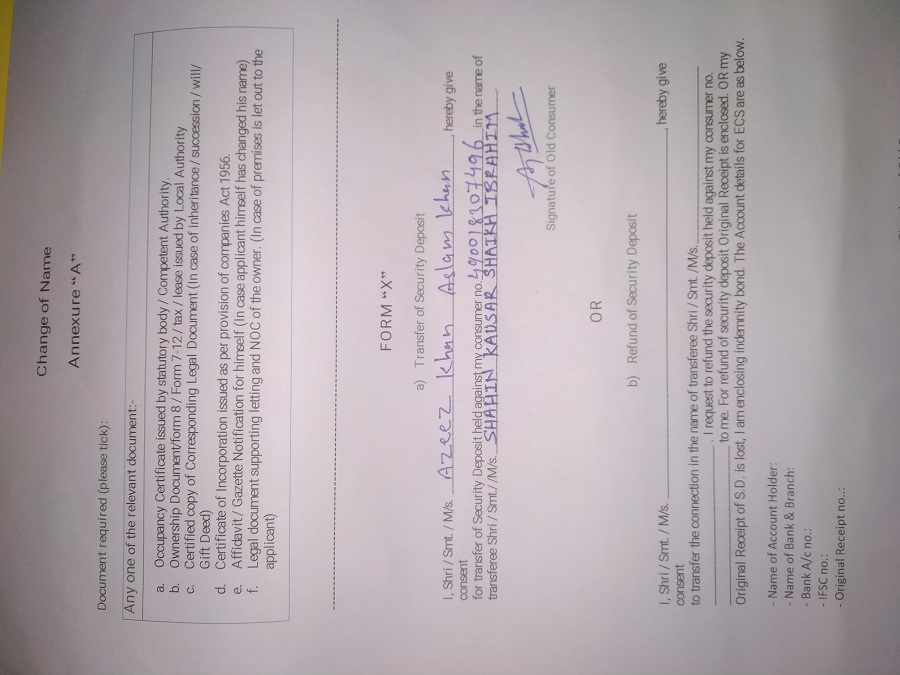 Change of Name
Annexure "A"
Document required (please tick):
Any one of the relevant document:-
a. Occupancy Certificate issued by statutory body / Competent Authority.
b. Ownership Document/form 8 / Form 7-12 / tax / lease issued by Local Authority
c. Certified copy of Corresponding Legal Document (In case of inheritance / succession / will/
Gift Deed)
d. Certificate of Incorporation issued as per provision of companies Act 1956.
e. Affidavit / Gazette Notification for himself (In case applicant himself has changed his name)
f. Legal document supporting letting and NOC of the owner. (In case of premises is let out to the
applicant)
FORM "X"
a) Transfer of Security Deposit
I, Shri / Smt. / M/s. Azeez Khan Aslam Khan, hereby give
consent
for transfer of Security Deposit held against my consumer no. 490018207496 in the name of
transferee Shri / Smt./ /M/s. SHAHIN KAUSAR SHAIKH IBRAHIM
Signature of Old Consumer
OR
b) Refund of Security Deposit
I, Shri / Smt. / M/s. ____________, hereby give
consent
to transfer the connection in the name of transferee Shri / Smt. /M/s. ____________
____________. I request to refund the security deposit held against my consumer no.
____________ to me. For refund of security deposit Original Receipt is enclosed. OR my
Original Receipt of S.D. is lost, I am enclosing indemnity bond. The Account details for ECS are as below.
- Name of Account Holder:
- Name of Bank & Branch:
- Bank A/c no.:
- IFSC no.:
- Original Receipt no..: